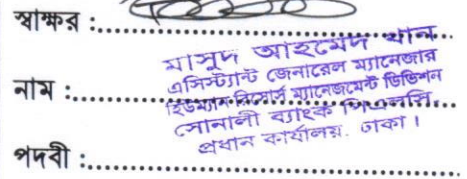 স্বাক্ষর :
মাসুদ আহমেদ খান
এসিস্ট্যান্ট জেনারেল ম্যানেজার
নাম :
হিউম্যান রিসোর্স ম্যানেজমেন্ট ডিভিশন
সোনালী ব্যাংক পিএলসি.
প্রধান কার্যালয়. ঢাকা।
পদবী :